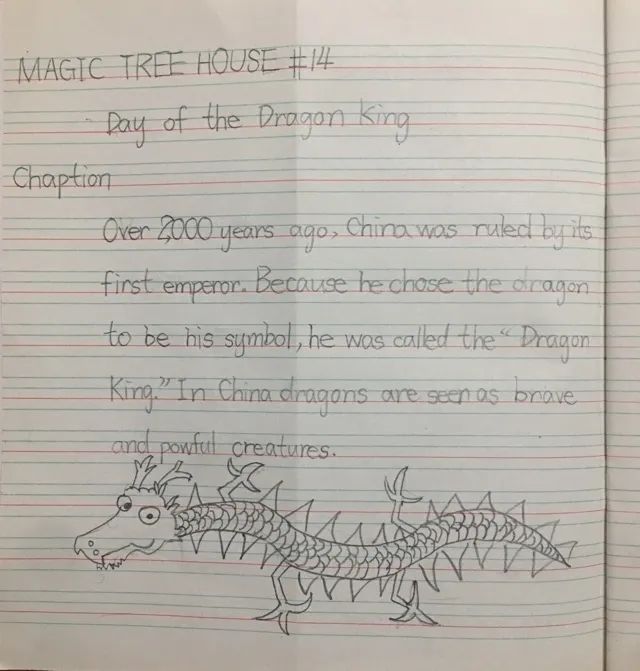 MAGIC TREE HOUSE #14
Day of the Dragon King
Chaption
Over 2000 years ago, China was ruled by its
first emperor. Because he chose the dragon
to be his symbol, he was called the "Dragon
King." In China dragons are seen as brave
and powful creatures.